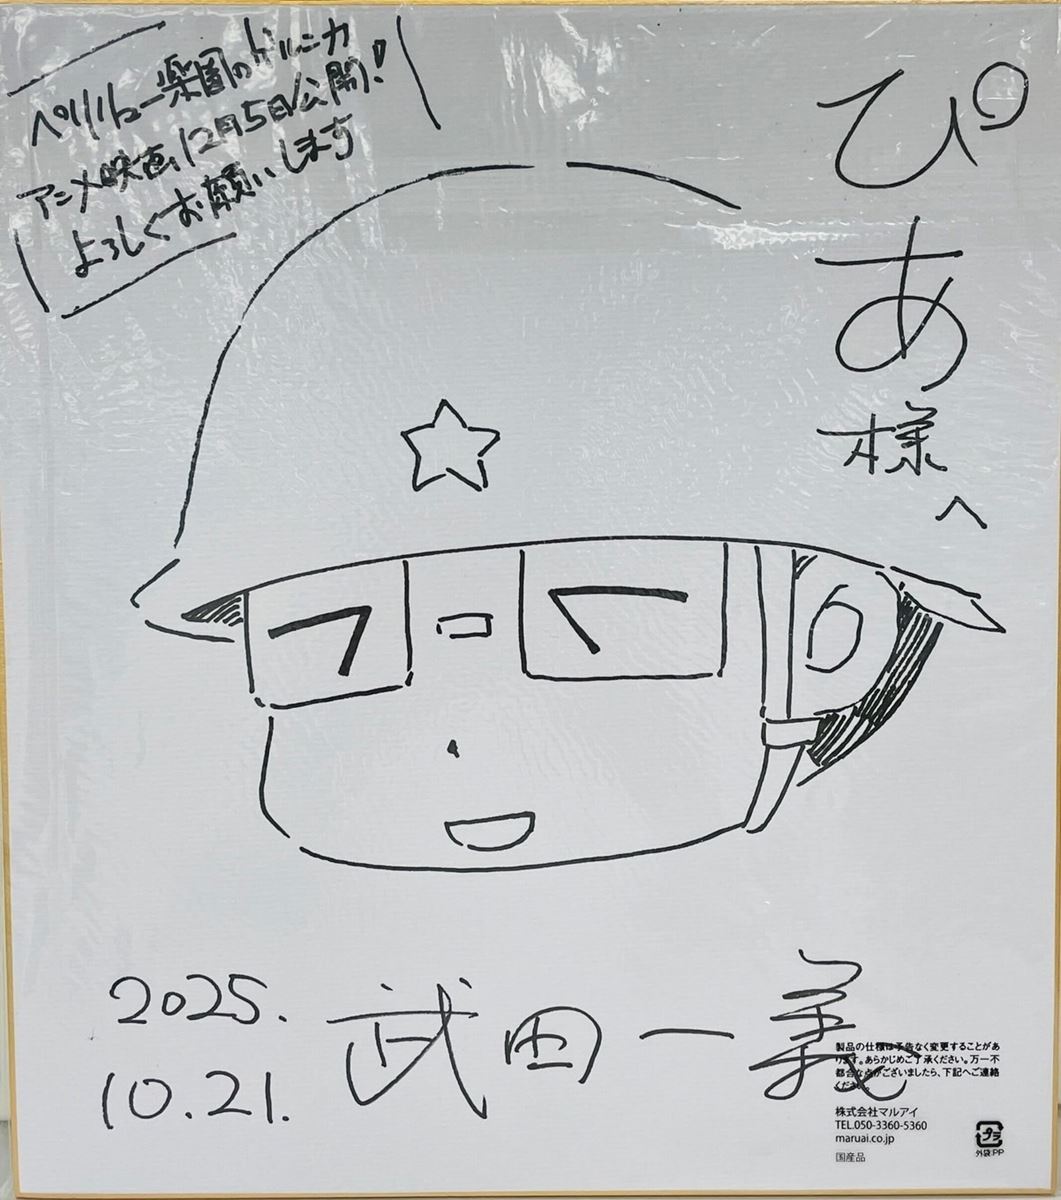 ペリリュー楽園のゲルニカ
アニメ映画、12月5日公開!
よろしくお願いします
ぴあ様へ
2025.
10.21.
武田一義
製品の仕様は予告なく変更することがあ
ります。あらかじめご了承ください。万一不
都合な点がございましたら、下記へご連絡
ください。
株式会社マルアイ
TEL.050-3360-5360
maruai.co.jp
国産品
プラ
外袋:PP